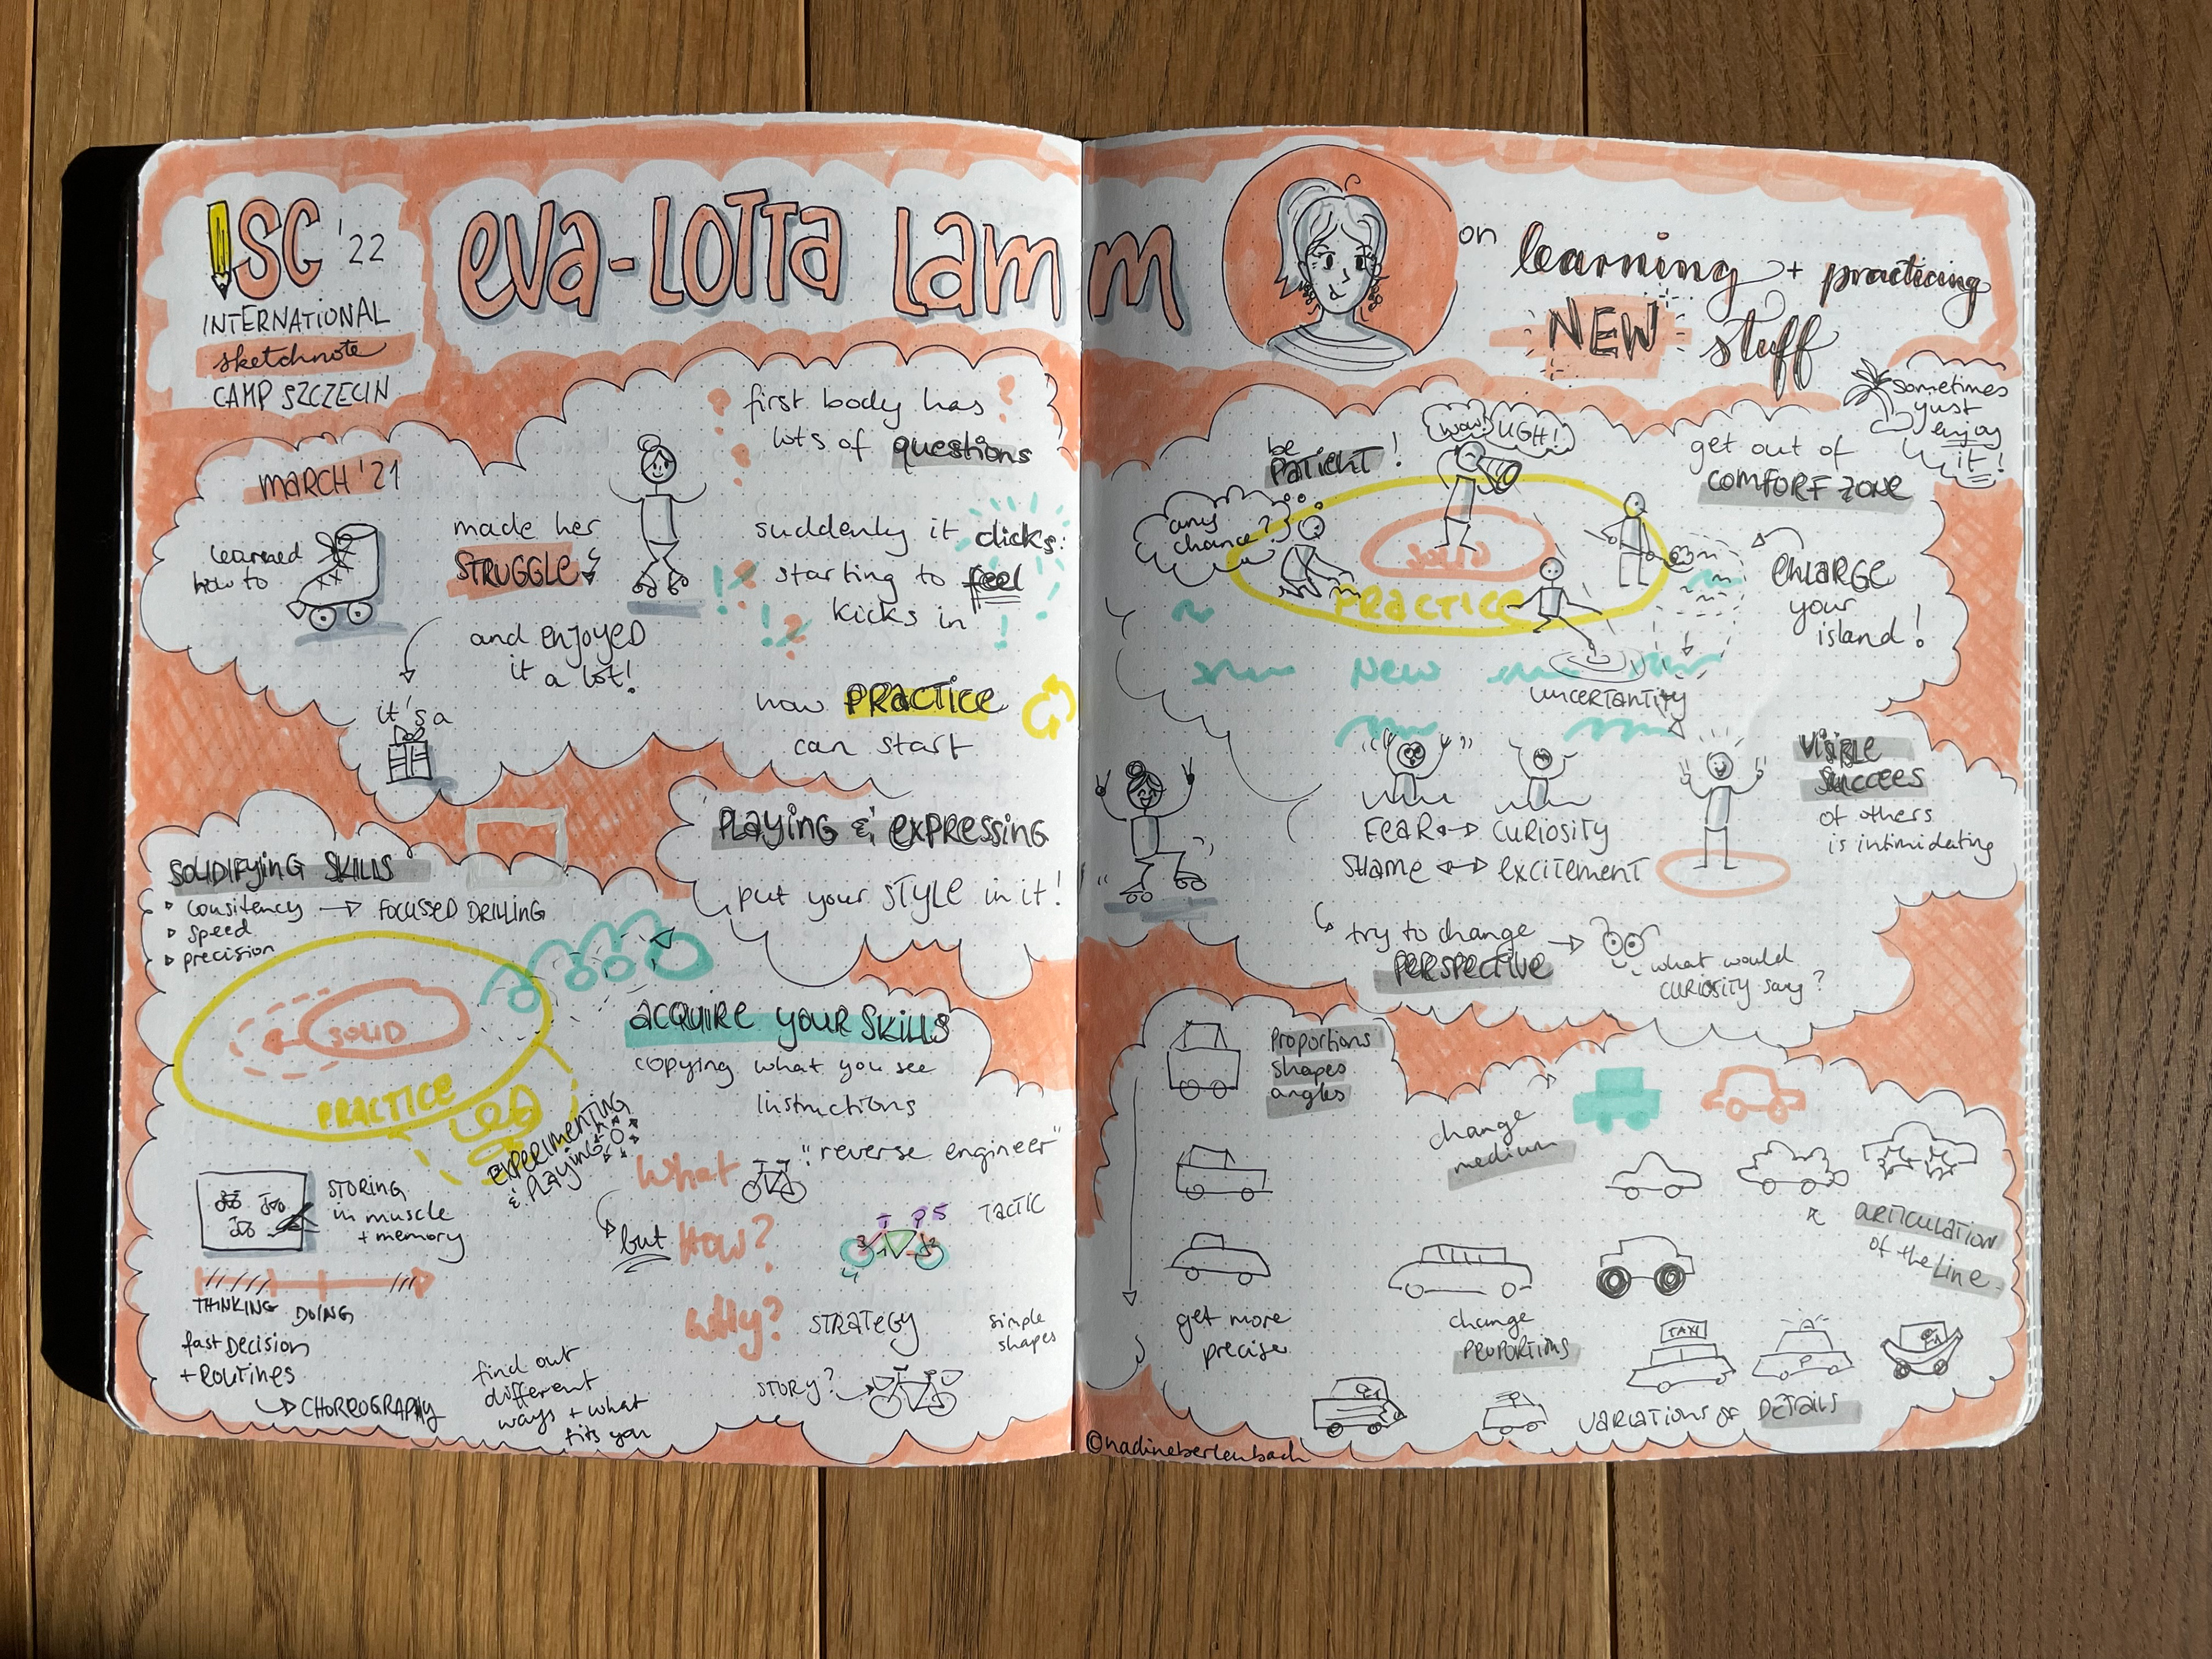 ISC '22
INTERNATIONAL
sketchnote
CAMP SZCZECIN
eva-LOTTa Lamm
on learning + practicing
NEW stuff
MARCH '21
learned
how to
made her
STRUGGLE
and ENJOYED
it a lot!
it's a
first body has
lots of questions
suddenly it clicks:
starting to feel
kicks in
now PRACTICE
can start
PLAYING & EXPRESSING
put your STYLE in it!
SOLIDIFYING SKILLS
consitency → FOCUSSED DRILLING
speed
precision
SOLID
PRACTICE
EXPERIMENTING
& PLAYING
STORING
in muscle
+ memory
THINKING DOING
fast Decision
+ ROUTINES
CHOREOGRAPHY
find out
different
ways + what
fits you
acquire your skills
copying what you see
instructions
"reverse engineer"
What
but How?
TACTIC
Why?
STRATEGY
simple
shapes
STORY?
be
PATIENT!
wow! UGH!
any
chance?
SOLID
PRACTICE
New
UNCERTANTITY
get out of
COMFORT ZONE
sometimes
just
enjoy
it!
ENLARGE
your
island!
FEAR ↔ CURIOSITY
SHAME ↔ EXCITEMENT
VISIBLE
SUCCEES
of others
is intimidating
try to change
PERSPECTIVE →
what would
CURIOSITY say?
Proportions
shapes
angles
change
medium
ARTICULATION
of the Line
get more
precise
change
PROPORTIONS
TAXI
P
VARIATIONS OF DETAILS
©nadineberlenbach